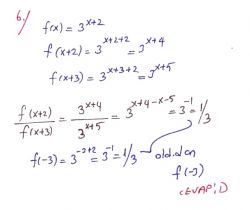 6.)
f(x) = 3^{x+2}
f(x+2) = 3^{x+2+2} = 3^{x+4}
f(x+3) = 3^{x+3+2} = 3^{x+5}
f(x+2)/f(x+3) = 3^{x+4}/3^{x+5} = 3^{x+4-x-5} = 3^{-1} = 1/3
f(-3) = 3^{-3+2} = 3^{-1} = 1/3 old.dan
f(-3)
CEVAP: D